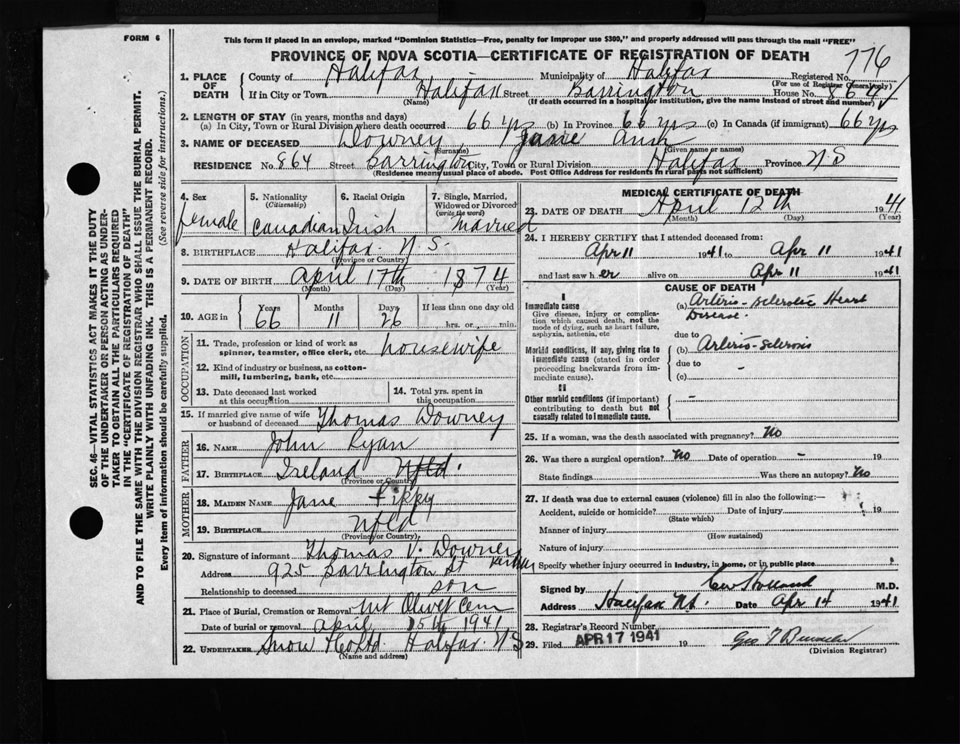 FORM 6
This form if placed in an envelope, marked "Dominion Statistics—Free, penalty for improper use $300," and properly addressed will pass through the mail "FREE"
PROVINCE OF NOVA SCOTIA—CERTIFICATE OF REGISTRATION OF DEATH
776
1. PLACE OF DEATH
County of Halifax Municipality of Halifax Registered No.
(For use of Registrar General only)
If in City or Town Halifax Street Barrington House No. 864
(Name) (If death occurred in a hospital or institution, give the name instead of street and number)
2. LENGTH OF STAY (in years, months and days)
(a) In City, Town or Rural Division where death occurred 66 yrs (b) In Province 66 yrs (c) In Canada (if immigrant) 66 yrs
3. NAME OF DECEASED Downey Jane Ann
(Surname) (Given name or names)
RESIDENCE No. 864 Street Barrington City, Town or Rural Division Halifax Province N S
(Residence means usual place of abode. Post Office Address for residents in rural parts not sufficient)
4. Sex female
5. Nationality (Citizenship) Canadian
6. Racial Origin Irish
7. Single, Married, Widowed or Divorced (write the word) Married
8. BIRTHPLACE Halifax N.S.
(Province or Country)
9. DATE OF BIRTH April 17th 1874
(Month) (Day) (Year)
10. AGE in Years 66 Months 11 Days 26 If less than one day old hrs. or min.
OCCUPATION
11. Trade, profession or kind of work as spinner, teamster, office clerk, etc. housewife
12. Kind of industry or business, as cotton-mill, lumbering, bank, etc.
13. Date deceased last worked at this occupation
14. Total yrs. spent in this occupation
15. If married give name of wife or husband of deceased Thomas Downey
FATHER
16. NAME John Ryan
17. BIRTHPLACE Ireland Nfld.
(Province or Country)
MOTHER
18. MAIDEN NAME Jane Pippy
19. BIRTHPLACE Nfld
(Province or Country)
20. Signature of informant Thomas V. Downey
Address 925 Barrington St
Relationship to deceased son
21. Place of Burial, Cremation or Removal Mt Olivet Cem
Date of burial or removal April 15th 1941
22. UNDERTAKER Snow & Co Ltd Halifax N S
(Name and address)
MEDICAL CERTIFICATE OF DEATH
23. DATE OF DEATH April 12th 1941
(Month) (Day) (Year)
24. I HEREBY CERTIFY that I attended deceased from
Apr 11 1941 to Apr 11 1941
and last saw her alive on Apr 11 1941
CAUSE OF DEATH
I
Immediate cause
Give disease, injury or complication which caused death, not the mode of dying, such as heart failure, asphyxia, asthenia, etc
(a) Arterio-sclerotic Heart Disease.
due to
Morbid conditions, if any, giving rise to immediate cause (stated in order proceeding backwards from immediate cause).
(b) Arterio-sclerosis
due to
(c) -
II
Other morbid conditions (if important) contributing to death but not causally related to immediate cause. -
25. If a woman, was the death associated with pregnancy? No
26. Was there a surgical operation? No Date of operation -
State findings Was there an autopsy? No
27. If death was due to external causes (violence) fill in also the following:—
Accident, suicide or homicide? Date of injury 19
(State which)
Manner of injury
(How sustained)
Nature of injury
Specify whether injury occurred in industry, in home, or in public place
Signed by M.D.
Address Halifax N.S. Date Apr 14 1941
28. Registrar's Record Number
29. Filed APR 17 1941 19
(Division Registrar)
SEC. 46—VITAL STATISTICS ACT MAKES IT THE DUTY
OF THE UNDERTAKER OR PERSON ACTING AS UNDERTAKER TO OBTAIN ALL THE PARTICULARS REQUIRED
IN THE "CERTIFICATE OF REGISTRATION OF DEATH"
AND TO FILE THE SAME WITH THE DIVISION REGISTRAR WHO SHALL ISSUE THE BURIAL PERMIT.
WRITE PLAINLY WITH UNFADING INK. THIS IS A PERMANENT RECORD.
Every item of information should be carefully supplied. (See reverse side for instructions.)